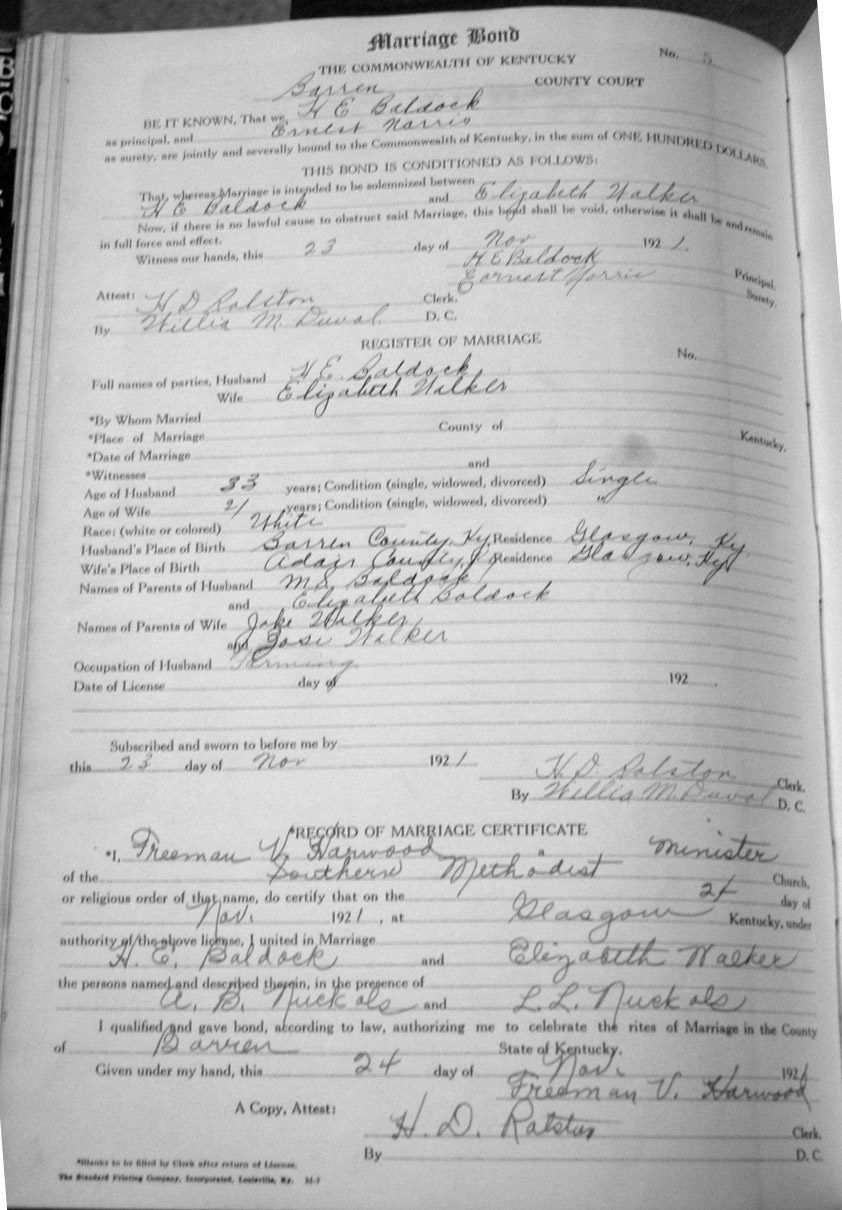 Marriage Bond
No. 5
THE COMMONWEALTH OF KENTUCKY
Barren COUNTY COURT
BE IT KNOWN, That we, H E Baldock
as principal, and Ernest Norris
as surety, are jointly and severally bound to the Commonwealth of Kentucky, in the sum of ONE HUNDRED DOLLARS.
THIS BOND IS CONDITIONED AS FOLLOWS:
That, whereas Marriage is intended to be solemnized between
H E Baldock and Elizabeth Walker
Now, if there is no lawful cause to obstruct said Marriage, this bond shall be void, otherwise it shall be and remain
in full force and effect.
Witness our hands, this 23 day of Nov 1921.
H E Baldock Principal.
Earnest Norris Surety.
Attest: H D Ralston Clerk.
By Willia M. Duval D. C.
REGISTER OF MARRIAGE
No.
Full names of parties, Husband H E. Baldock
Wife Elizabeth Walker
*By Whom Married
*Place of Marriage County of Kentucky,
*Date of Marriage
*Witnesses and
Age of Husband 33 years; Condition (single, widowed, divorced) Single
Age of Wife 21 years; Condition (single, widowed, divorced) "
Race: (white or colored) White
Husband's Place of Birth Barren County, Ky. Residence Glasgow, Ky
Wife's Place of Birth Adair County, Ky Residence Glasgow, Ky
Names of Parents of Husband M S. Baldock
and Elizabeth Baldock
Names of Parents of Wife Jake Walker
and Josi Walker
Occupation of Husband Farming
Date of License day of 192 .
Subscribed and sworn to before me by
this 23 day of Nov 1921
H. D. Ralston Clerk.
By Willia M. Duval D. C.
*RECORD OF MARRIAGE CERTIFICATE
*I, Freeman V. Harwood Minister
of the Southern Methodist Church,
or religious order of that name, do certify that on the 24 day of
Nov. 1921, at Glasgow Kentucky, under
authority of the above license, I united in Marriage
H. E. Baldock and Elizabeth Walker
the persons named and described therein, in the presence of
A. B. Nuckols and L. L. Nuckols
I qualified and gave bond, according to law, authorizing me to celebrate the rites of Marriage in the County
of Barren State of Kentucky.
Given under my hand, this 24 day of Nov. 1921
Freeman V. Harwood
A Copy, Attest:
H. D. Ralston Clerk.
By D. C.
*Blanks to be filled by Clerk after return of License.
The Standard Printing Company, Incorporated, Louisville, Ky.